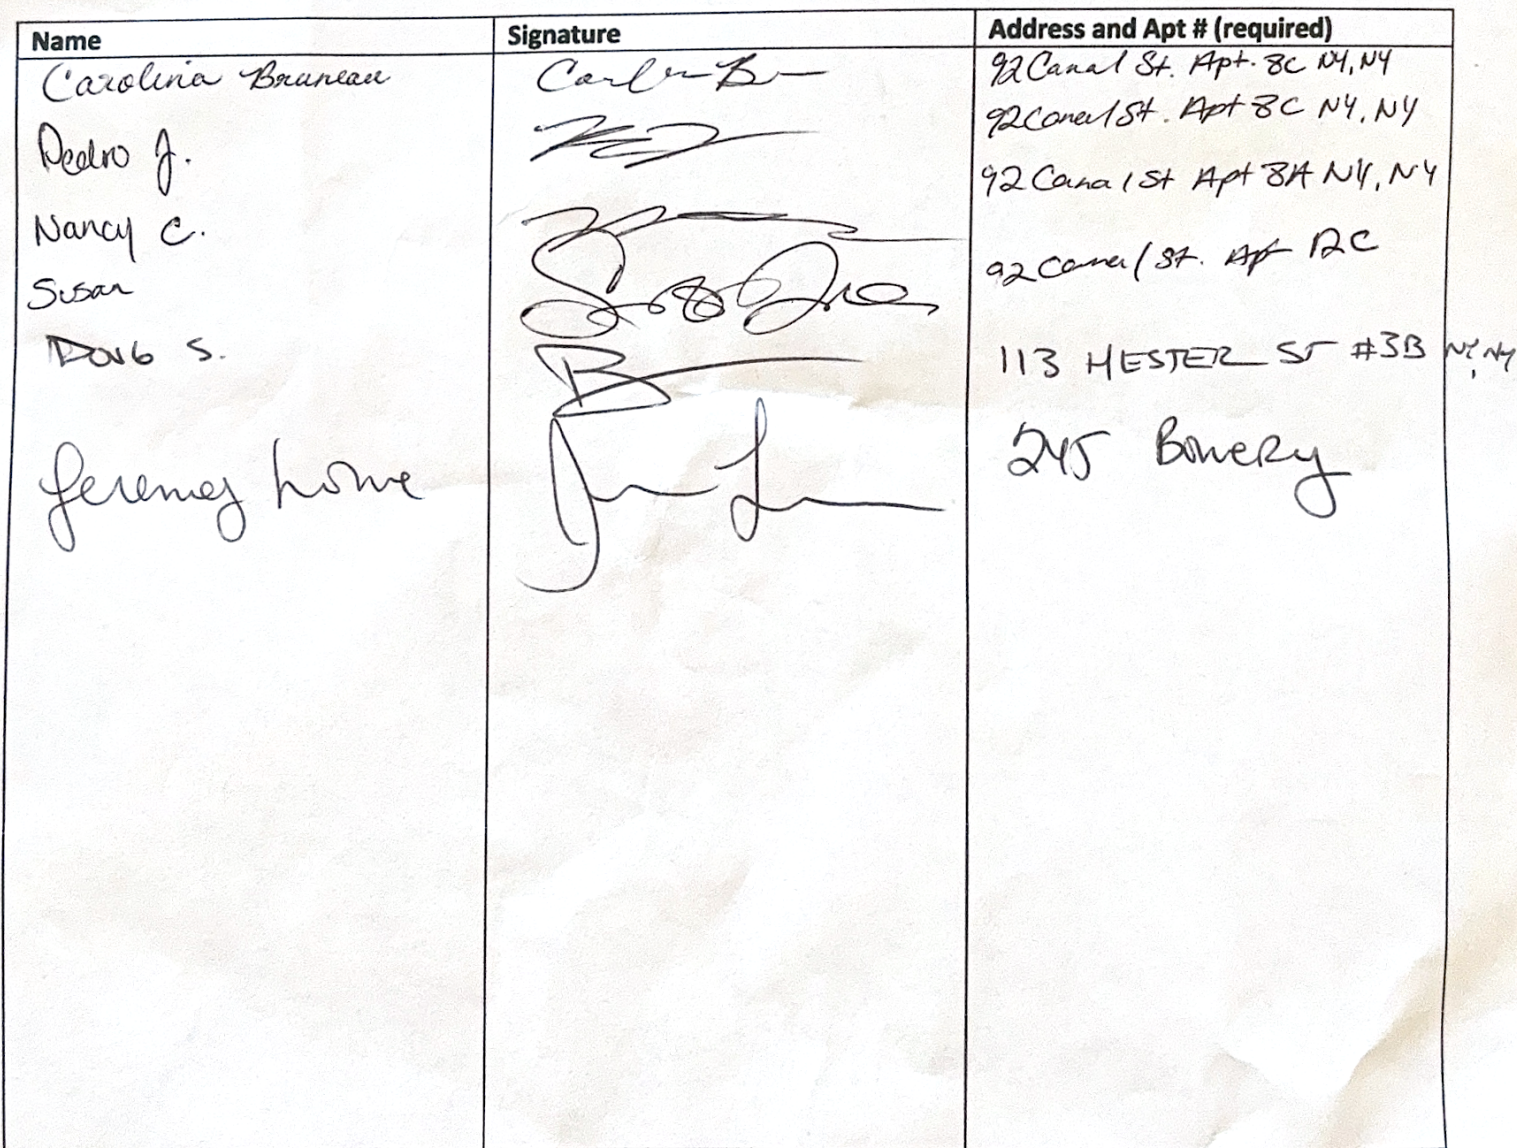 Name Signature Address and Apt # (required)
Carolina Bruneau 92 Canal St. Apt. 8C NY, NY
Pedro J. 92 Canal St. Apt 8C NY, NY
Nancy C. 92 Canal St Apt 8A NY, NY
Susan 92 Canal St. Apt 12C
Doug S. 113 HESTER ST #3B NY, NY
Jeremy Lowe 245 Bowery